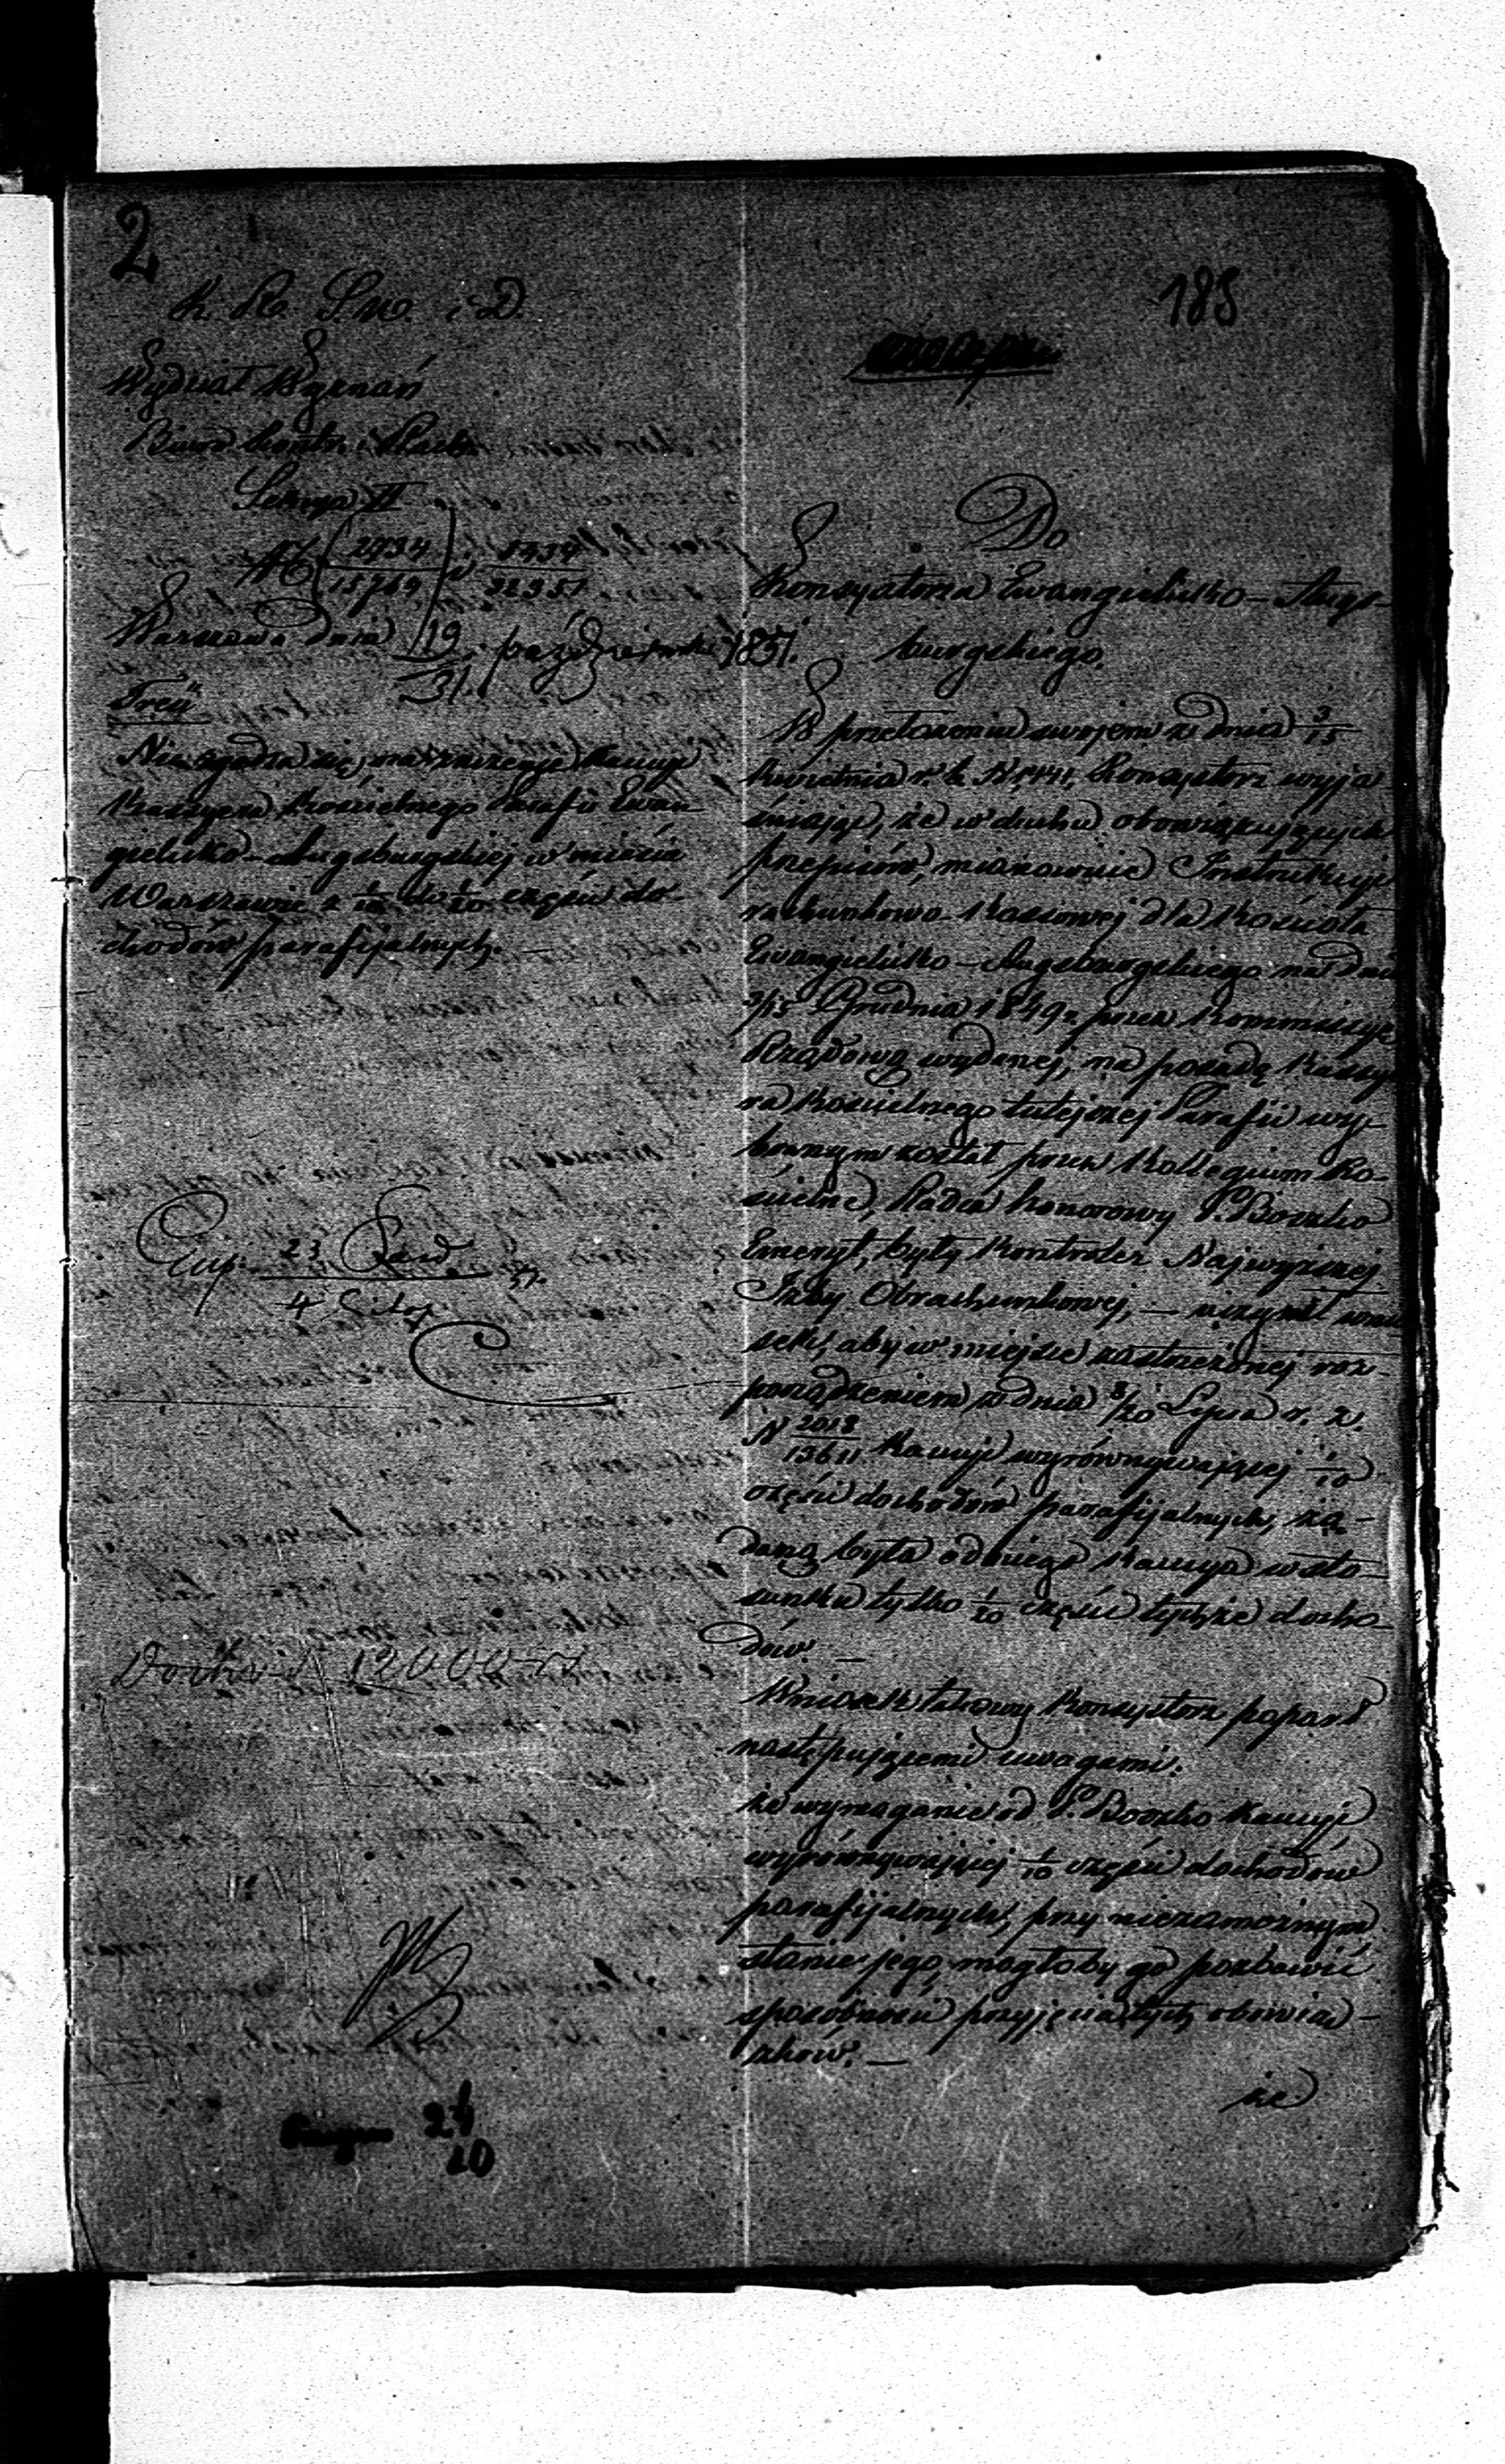 2
183
K. R. S. W. i D.
Wydział Wyznań
Biuro Kontr. i Rach.
Sekcya II
N (2734/15769) 5434/32351
Warszawa dnia 19/31 października 1851.
Treść
Nie zgadza się na zniżenie kaucyi
Kassyera Kościelnego Parafii Ewan-
gielicko-Augsburgskiej w mieście
Warszawie z 1/10 do 1/20 części do-
chodów parafijalnych. —
23
4
Dochód 12000
24
10
Do
Konsystorza Ewangielicko-Augs-
burgskiego.
W przełożeniu swojem z dnia 3/15
Kwietnia r. b. N 1141, Konsystorz wyja
śniając, że w duchu obowiązujących
przepisów, mianowicie Instrukcyi
rachunkowo-Kassowej dla Kościoła
Ewangielicko-Augsburgskiego na dniu
3/15 Grudnia 1849 r. przez Kommissyę
Rządową wydanej, na posadę Kassye
ra Kościelnego tutejszej Parafii wy-
branym został przez Kollegium Ko-
ścielne, Radca honorowy P. Boozko
Emeryt, były Kontroler Najwyższej
Izby Obrachunkowej, — uczynił wnio
sek, aby w miejsce zastrzeżonej roz-
porządzeniem z dnia 8/20 Lipca r. z.
N 2018/13611 kaucyi wyrównywającej 1/10
części dochodów parafijalnych, żą-
daną była od niego kaucya w sto-
sunku tylko 1/20 części tychże docho-
dów. —
Wniosek takowy Konsystorz poparł
następującemi uwagami.
że wymaganie od P. Boozko kaucyi
wyrównywającej 1/10 części dochodów
parafijalnych, przy niezamożnym
stanie jego, mogłoby go pozbawić
sposobności przyjęcia tych obowią-
zków. —
że